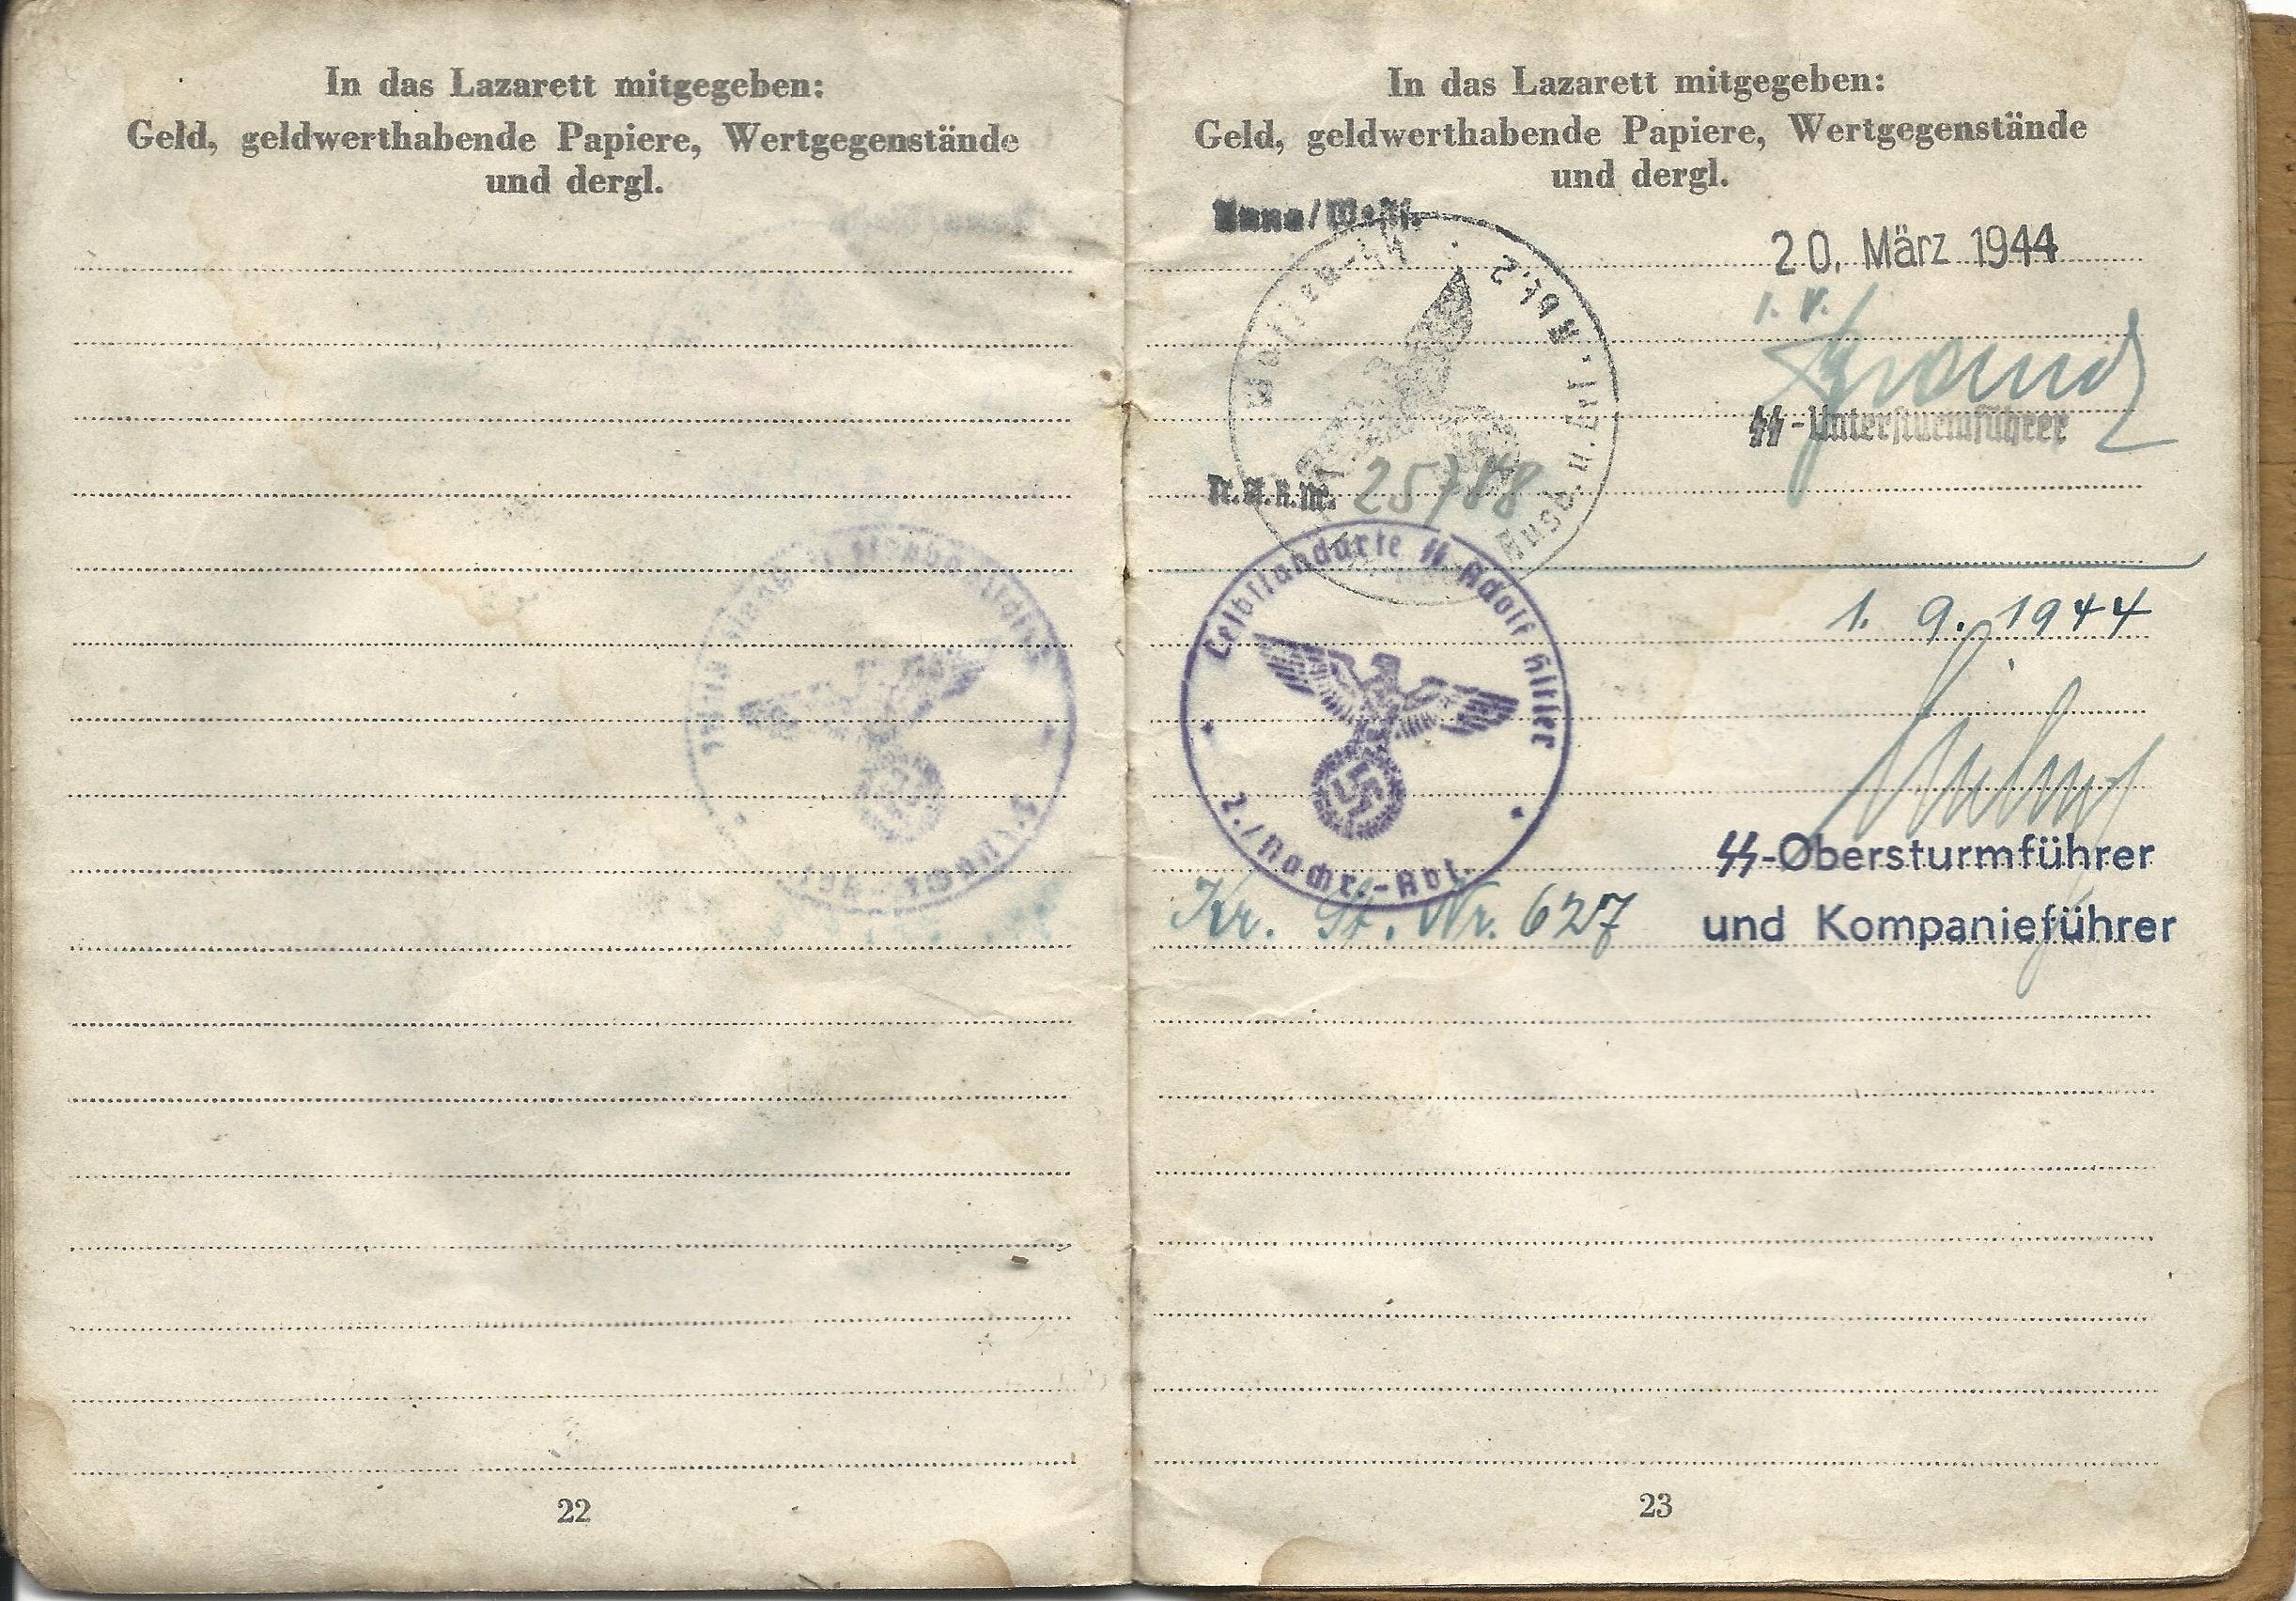 In das Lazarett mitgegeben:
Geld, geldwerthabende Papiere, Wertgegenstände
und dergl.
22
In das Lazarett mitgegeben:
Geld, geldwerthabende Papiere, Wertgegenstände
und dergl.
Unna/Westf.
20. März 1944
Waffen-SS
Ausb.u.Ers.Abt.2
i. V.
SS-Untersturmführer
Tr.St.R.Nr. 25788
Leibstandarte SS Adolf Hitler
2./Nachr.-Abt.
1. 9. 1944
SS-Obersturmführer
Kr. St. Nr. 627
und Kompanieführer
23